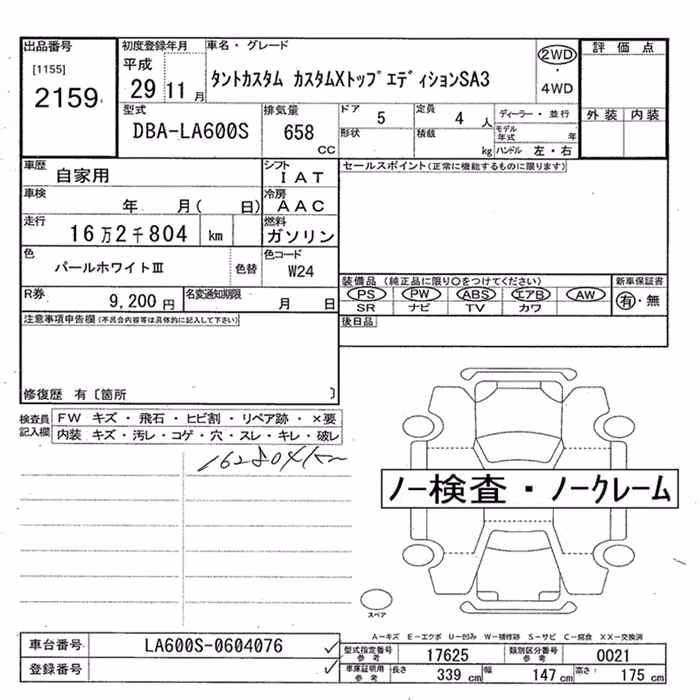 出品番号
[1155]
2159
初度登録年月
平成
29 11 月
車名・グレード
タントカスタム カスタムXトップエディションSA3
2WD
・
4WD
評価点
外装 内装
型式
DBA-LA600S
排気量
658
CC
ドア 5
定員 4 人
形状
積載 kg
ディーラー・並行
モデル年式 年
ハンドル 左・右
車歴
自家用
シフト
IAT
車検
年 月( 日)
冷房
AAC
走行
16万2千804 km
燃料
ガソリン
色
パールホワイトⅢ
色替
色コード
W24
R券
9,200 円
名変通知期限
月 日
セールスポイント(正常に機能するものに限ります)
装備品 (純正品に限り〇をつけてください)
PS PW ABS エアB AW
SR ナビ TV カワ
新車保証書
有・無
後日品
注意事項申告欄(不具合内容等は具体的に記入して下さい)
修復歴 有〔箇所 〕
検査員
記入欄
FW キズ・飛石・ヒビ割・リペア跡・×要
内装 キズ・汚レ・コゲ・穴・スレ・キレ・破レ
162804km
ノー検査・ノークレーム
スペア
A-キズ E-エクボ U-凹み W-補修跡 S-サビ C-腐食 XX-交換済
車台番号
LA600S-0604076
登録番号
型式指定番号
参考
17625
類別区分番号
参考
0021
車庫証明用
参考
長さ 339 cm
幅 147 cm
高さ 175 cm